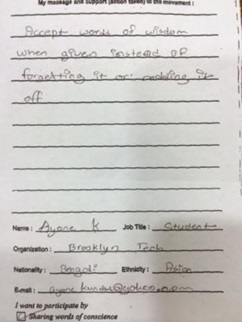 My massage and support (action taken) to the movement :
Accept words of wisdom
when given instead of
forgetting it or it
off
Name : Ayone K Job Title : Student
Organization : Brooklyn Tech
Nationality : Bengali Ethnicity : Asian
E-mail :
I want to participate by
Sharing words of conscience